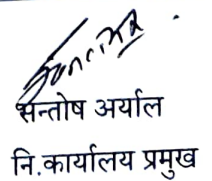 सन्तोष अर्याल
नि.कार्यालय प्रमुख